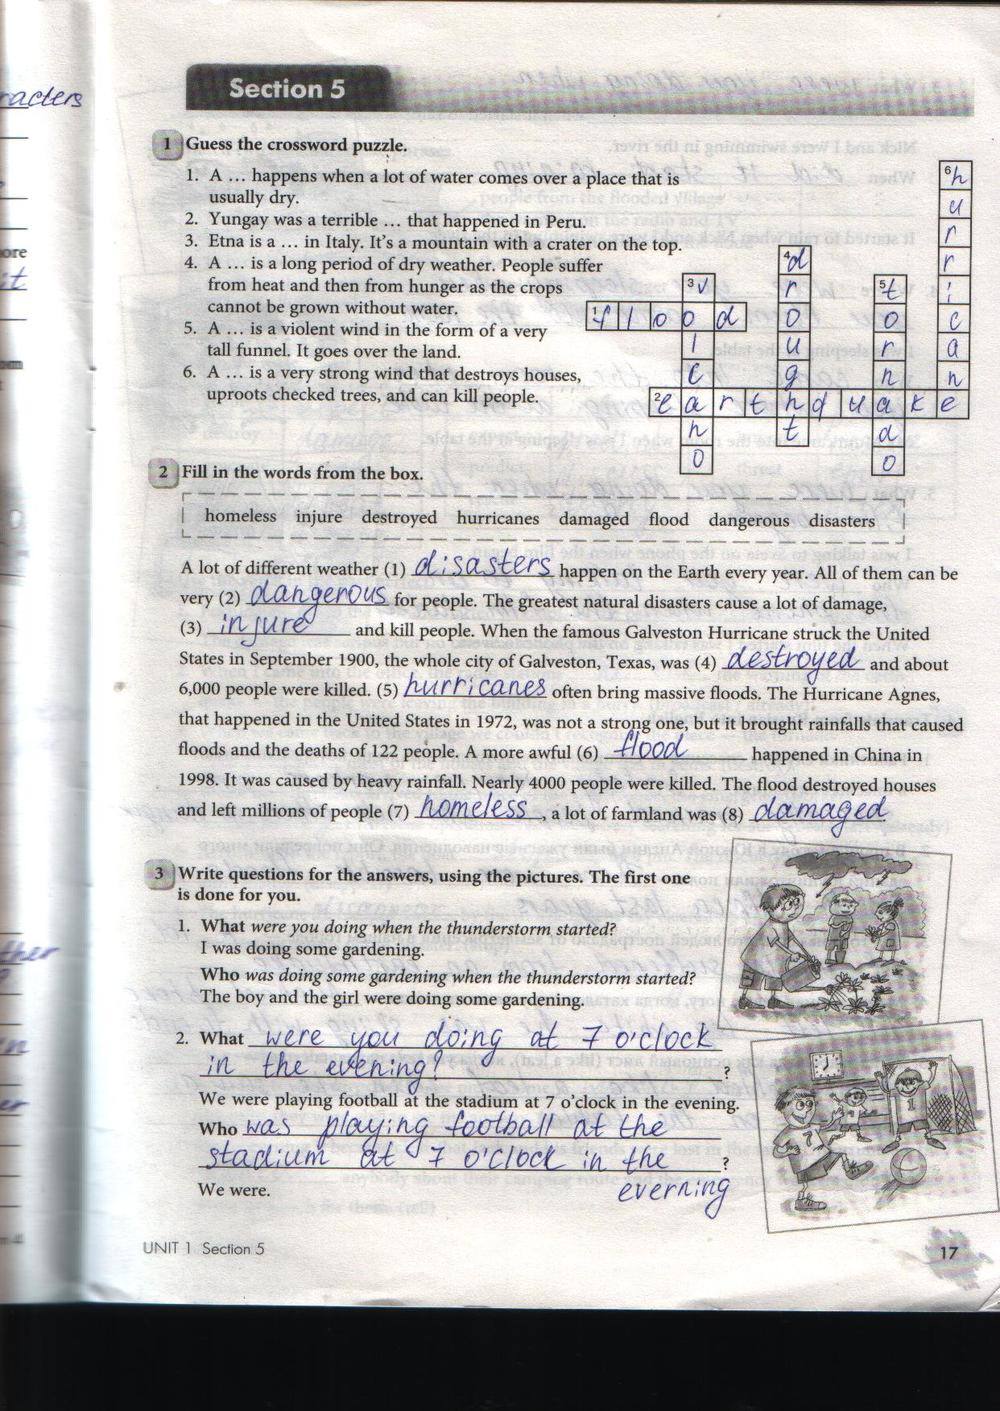 racters
ore
it
ther
in
er
Section 5
1 Guess the crossword puzzle.
1. A ... happens when a lot of water comes over a place that is
usually dry.
2. Yungay was a terrible ... that happened in Peru.
3. Etna is a ... in Italy. It's a mountain with a crater on the top.
4. A ... is a long period of dry weather. People suffer
from heat and then from hunger as the crops
cannot be grown without water.
5. A ... is a violent wind in the form of a very
tall funnel. It goes over the land.
6. A ... is a very strong wind that destroys houses,
uproots checked trees, and can kill people.
1 flood
2 earthquake
3 volcano
4 drought
5 tornado
6 hurricane
2 Fill in the words from the box.
homeless injure destroyed hurricanes damaged flood dangerous disasters
A lot of different weather (1) disasters happen on the Earth every year. All of them can be
very (2) dangerous for people. The greatest natural disasters cause a lot of damage,
(3) injure and kill people. When the famous Galveston Hurricane struck the United
States in September 1900, the whole city of Galveston, Texas, was (4) destroyed and about
6,000 people were killed. (5) hurricanes often bring massive floods. The Hurricane Agnes,
that happened in the United States in 1972, was not a strong one, but it brought rainfalls that caused
floods and the deaths of 122 people. A more awful (6) flood happened in China in
1998. It was caused by heavy rainfall. Nearly 4000 people were killed. The flood destroyed houses
and left millions of people (7) homeless, a lot of farmland was (8) damaged
3 Write questions for the answers, using the pictures. The first one
is done for you.
1. What were you doing when the thunderstorm started?
I was doing some gardening.
Who was doing some gardening when the thunderstorm started?
The boy and the girl were doing some gardening.
2. What were you doing at 7 o'clock
in the evening? ?
We were playing football at the stadium at 7 o'clock in the evening.
Who was playing football at the
stadium at 7 o'clock in the ?
everning
We were.
UNIT 1 Section 5
17